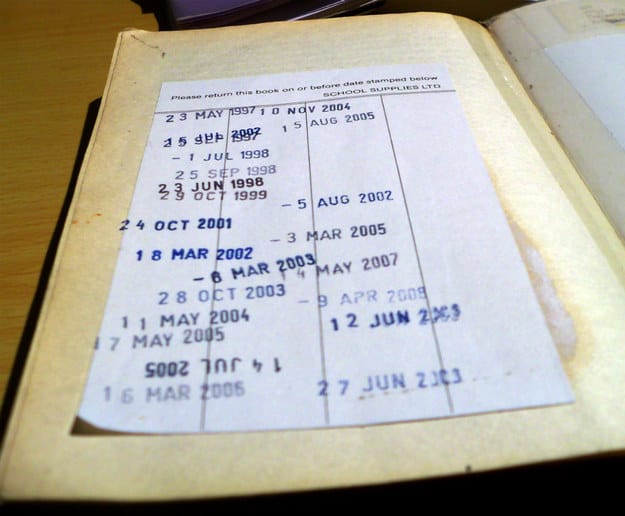 Please return this book on or before date stamped below
SCHOOL SUPPLIES LTD
23 MAY 1997 10 NOV 2004
15 AUG 2005
15 JUL 2002
SEP 1997
- 1 JUL 1998
25 SEP 1998
23 JUN 1998
29 OCT 1999
- 5 AUG 2002
24 OCT 2001
- 3 MAR 2005
18 MAR 2002
- 6 MAR 2003
14 MAY 2007
28 OCT 2003
- 9 APR
11 MAY 2004
12 JUN
17 MAY 2005
14 JUL 2005
16 MAR 2006
27 JUN